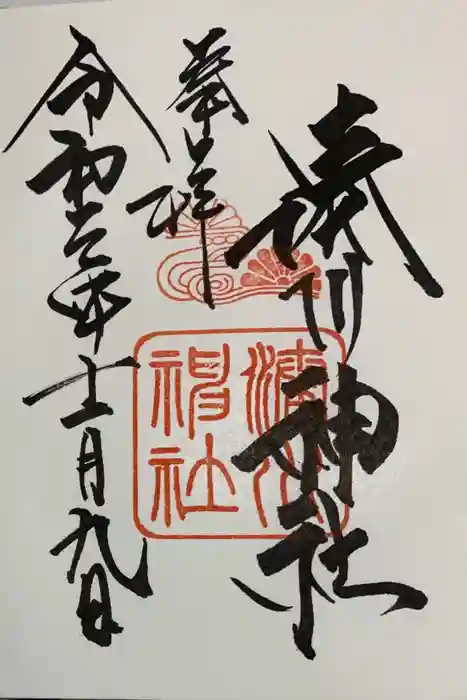 湊川神社
奉拝
令和二年十二月九日
湊川
神社